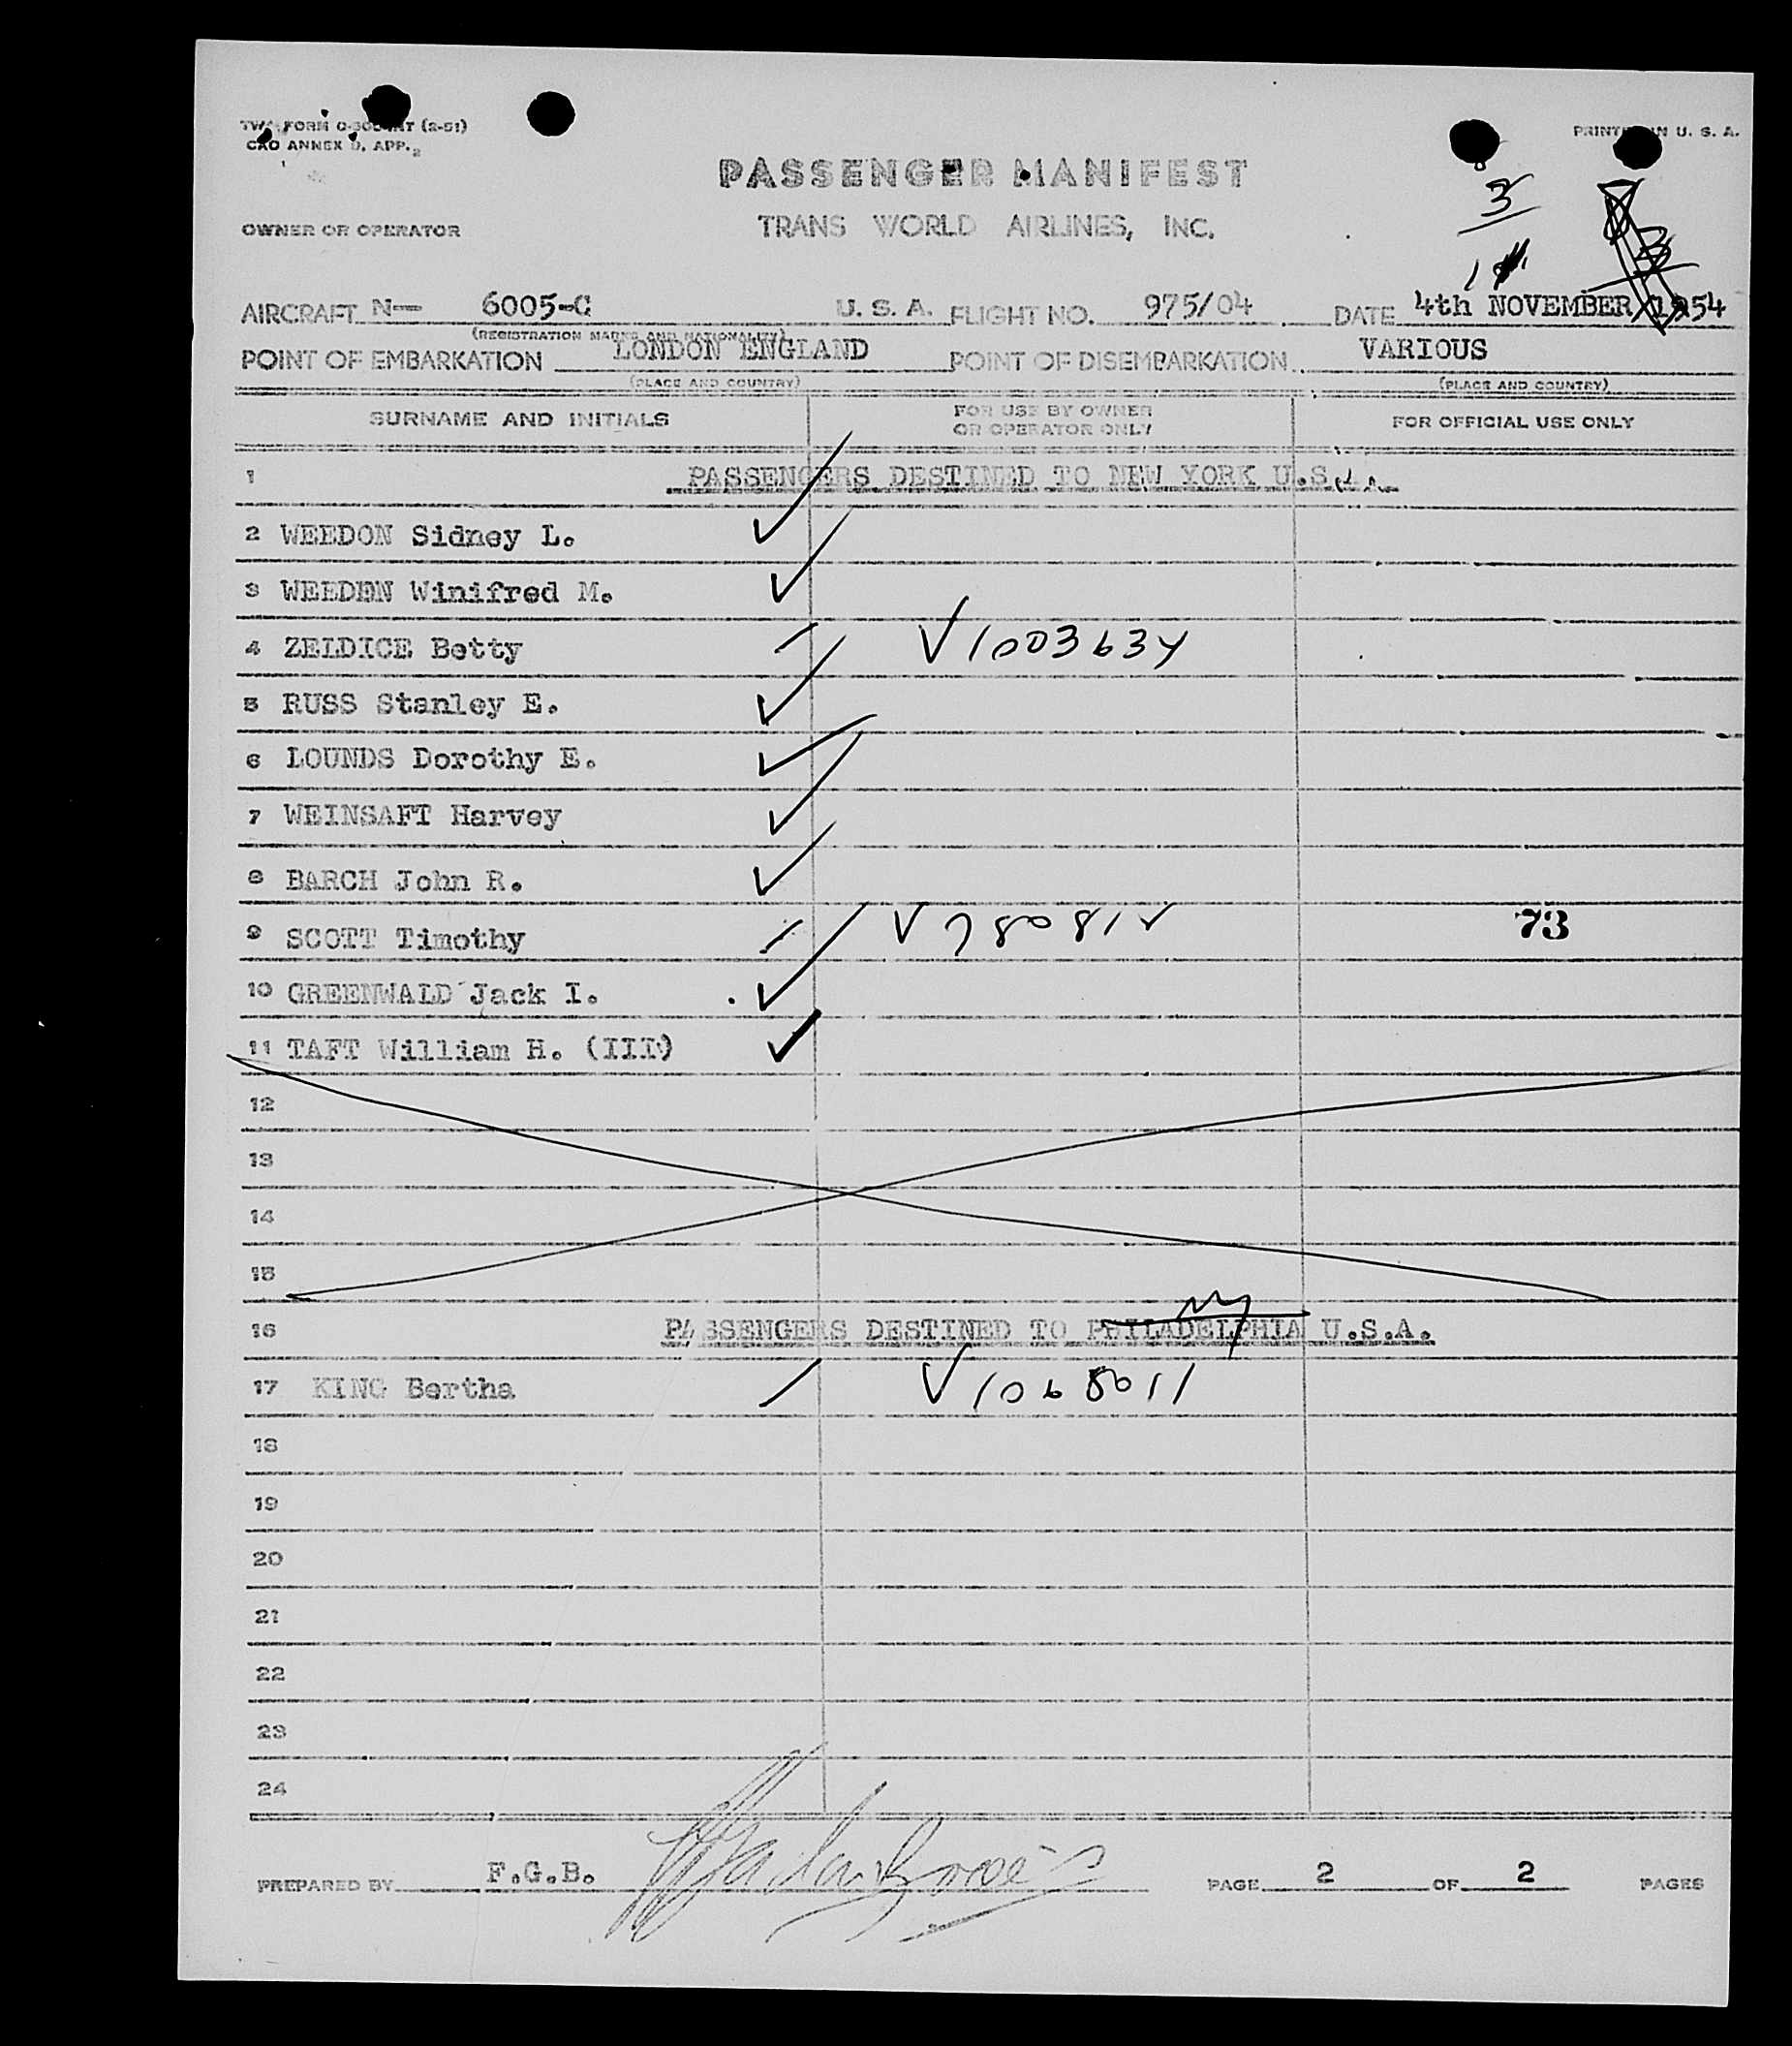 TWA FORM (2-51)
PRINTED IN U. S. A.
CAO ANNEX 9, APP. 2
PASSENGER MANIFEST
3
OWNER OR OPERATOR
TRANS WORLD AIRLINES, INC.
3
AIRCRAFT N— 6005-C U. S. A. FLIGHT NO. 975/04 DATE 4th NOVEMBER 1954
(REGISTRATION MARKS AND NATIONALITY)
POINT OF EMBARKATION LONDON ENGLAND POINT OF DISEMBARKATION VARIOUS
(PLACE AND COUNTRY) (PLACE AND COUNTRY)
SURNAME AND INITIALS FOR USE BY OWNER OR OPERATOR ONLY FOR OFFICIAL USE ONLY
1 PASSENGERS DESTINED TO NEW YORK U.S.A.
2 WEEDON Sidney L. ✓
3 WEEDEN Winifred M. ✓
4 ZELDICE Betty / ✓ 1003634
5 RUSS Stanley E. ✓
6 LOUNDS Dorothy E. ✓
7 WEINSAFT Harvey ✓
8 BARCH John R. ✓
9 SCOTT Timothy / ✓ 73
10 GREENWALD Jack I. ✓
11 TAFT William H. (III) ✓
12
13
14
15
NY
16 PASSENGERS DESTINED TO PHILADELPHIA U.S.A.
17 KING Bertha / ✓ 1068011
18
19
20
21
22
23
24
PREPARED BY F.G.B. PAGE 2 OF 2 PAGES